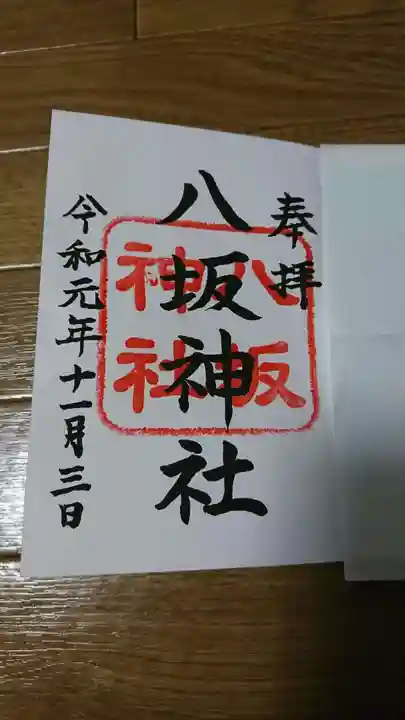 奉拝
八坂神社
八坂
神社
令和元年十一月三日